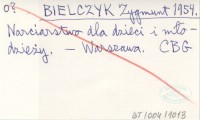 o? BIELCZYK Zygmunt 1954.
Narciarstwo dla dzieci i mło-
dzieży. — Warszawa. CBG
BT/004/1013